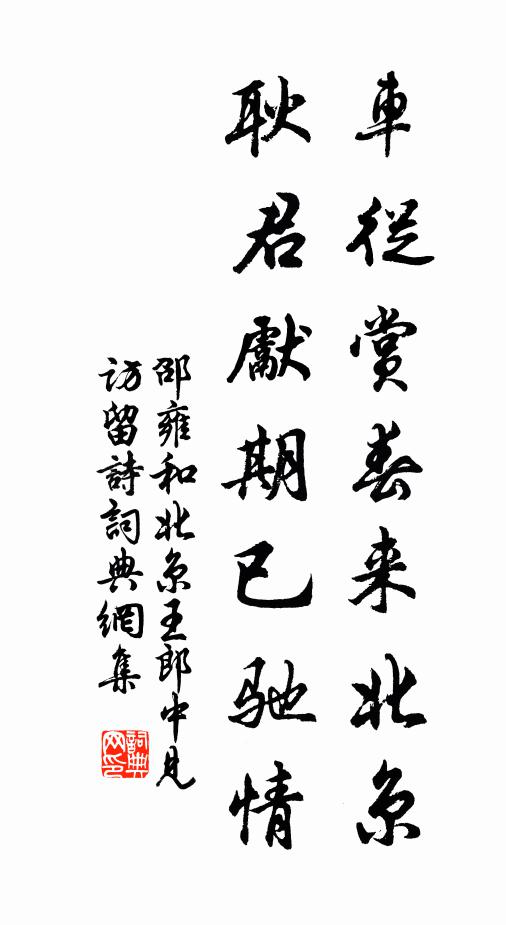 車從賞春来北京
耿君獻期已馳情
邵雍和北京王郎中見
访留詩詞典網集
詞典网印